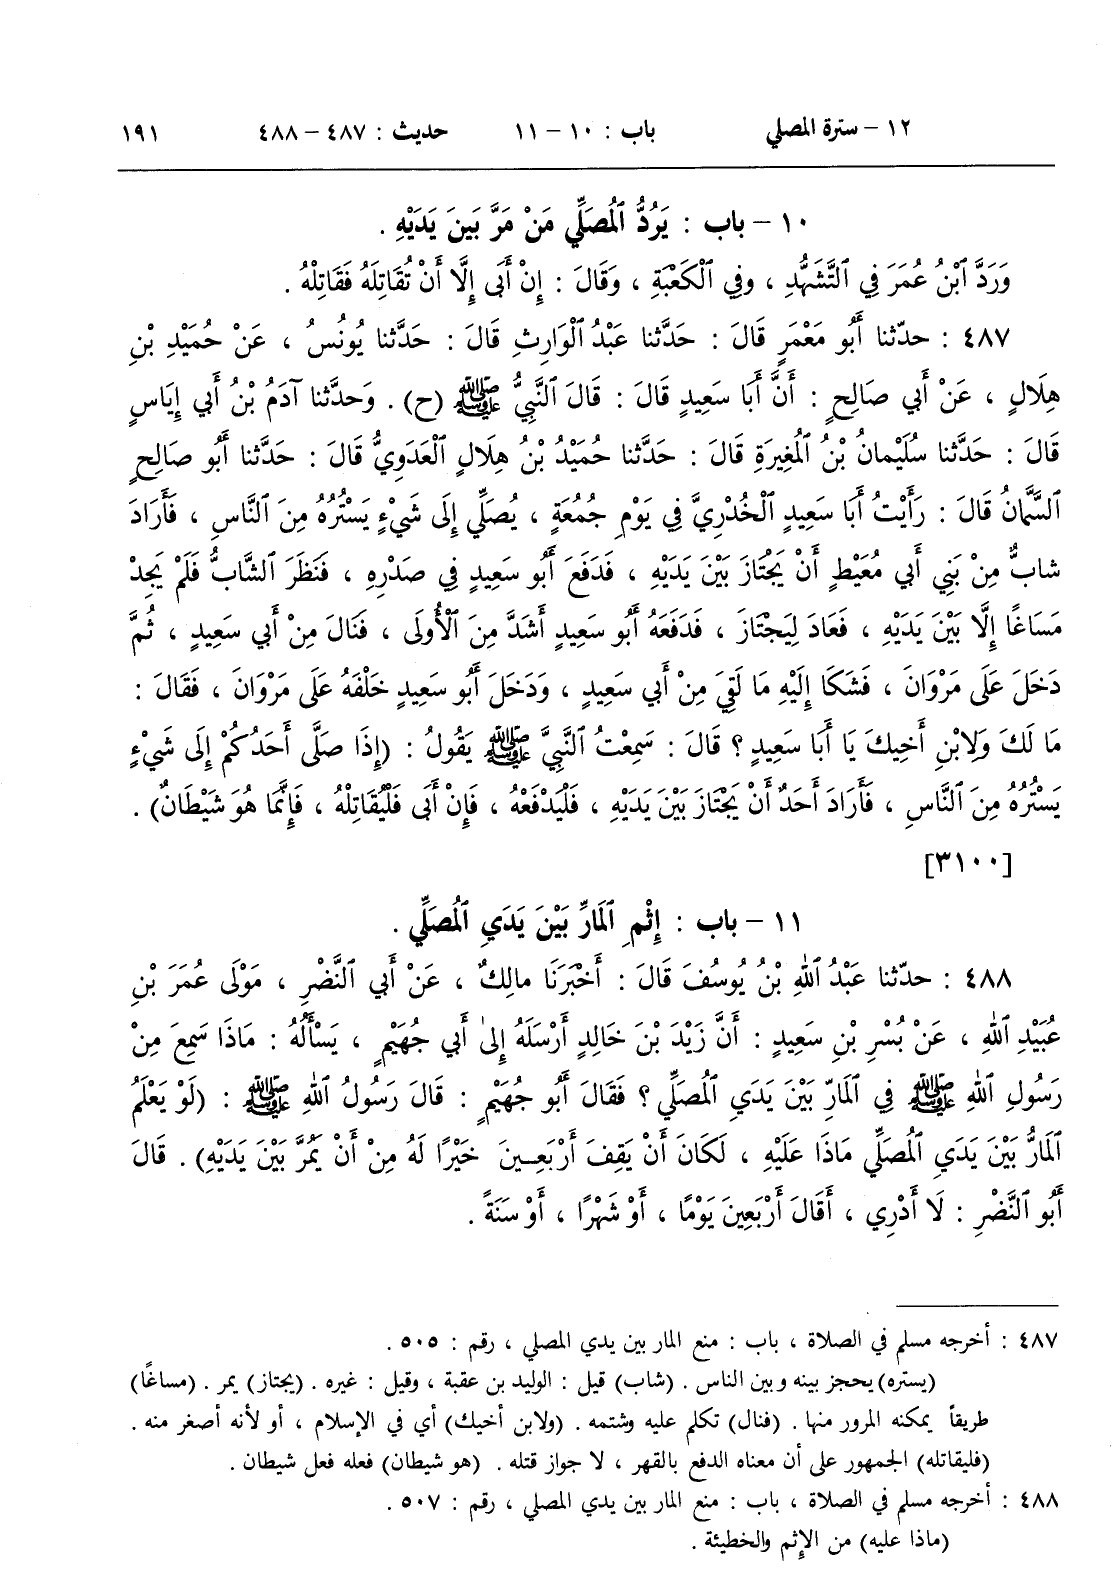 ١٢ – سترة المصلي باب : ١٠ – ١١ حديث : ٤٨٧ – ٤٨٨ ١٩١
١٠ – باب : يَرُدُّ ٱلْمُصَلِّي مَنْ مَرَّ بَينَ يَدَيْهِ .
وَرَدَّ ٱبْنُ عُمَرَ فِي ٱلتَّشَهُّدِ ، وفِي ٱلْكَعْبَةِ ، وَقَالَ : إِنْ أَبَى إِلَّا أَنْ تُقَاتِلَهُ فَقَاتِلْهُ .
٤٨٧ : حدّثنا أَبُو مَعْمَرٍ قَالَ : حَدَّثنا عَبْدُ الْوَارِثِ قَالَ : حَدَّثنا يُونُسُ ، عَنْ حُمَيْدِ بْنِ
هِلَالٍ ، عَنْ أَبي صَالِحٍ : أَنَّ أَبَا سَعِيدٍ قَالَ : قَالَ ٱلنَّبِيُّ ﷺ (ح) . وَحدَّثنا آدَمُ بْنُ أَبي إِيَاسٍ
قَالَ : حَدَّثنا سُلَيْمانُ بْنُ ٱلْمُغِيرَةِ قَالَ : حَدَّثنا حُمَيْدُ بْنُ هِلَالٍ ٱلْعَدَوِيُّ قَالَ : حَدَّثنا أَبُو صَالِحٍ
ٱلسَّمَّانُ قَالَ : رَأَيْتُ أَبَا سَعِيدٍ ٱلْخُدْرِيَّ فِي يَوْمِ جُمُعَةٍ ، يُصَلِّي إِلَى شَيْءٍ يَسْتُرُهُ مِنَ ٱلنَّاسِ ، فَأَرَادَ
شابٌّ مِنْ بَنِي أَبي مُعَيْطٍ أَنْ يَجْتَازَ بَيْنَ يَدَيْهِ ، فَدَفَعَ أَبُو سَعِيدٍ فِي صَدْرِهِ ، فَنَظَرَ ٱلشَّابُّ فَلَمْ يَجِدْ
مَسَاغًا إِلَّا بَيْنَ يَدَيْهِ ، فَعَادَ لِيَجْتَازَ ، فَدَفَعَهُ أَبُو سَعِيدٍ أَشَدَّ مِنَ ٱلْأُولَى ، فَنَالَ مِنْ أَبي سَعِيدٍ ، ثُمَّ
دَخَلَ عَلَى مَرْوَانَ ، فَشَكَا إِلَيْهِ مَا لَقِيَ مِنْ أَبي سَعِيدٍ ، وَدَخَلَ أَبُو سَعِيدٍ خَلْفَهُ عَلَى مَرْوَانَ ، فَقَالَ :
مَا لَكَ وَلِابْنِ أَخِيكَ يَا أَبَا سَعِيدٍ ؟ قَالَ : سَمِعْتُ ٱلنَّبِيَّ ﷺ يَقُولُ : (إِذَا صَلَّى أَحَدُكُمْ إِلَى شَيْءٍ
يَسْتُرُهُ مِنَ ٱلنَّاسِ ، فَأَرَادَ أَحَدٌ أَنْ يَجْتَازَ بَيْنَ يَدَيْهِ ، فَلْيَدْفَعْهُ ، فَإِنْ أَبَى فَلْيُقَاتِلْهُ ، فَإِنَّمَا هُوَ شَيْطَانٌ) .
[٣١٠٠]
١١ – باب : إِثْمِ ٱلمَارِّ بَيْنَ يَدَيِ ٱلْمُصَلِّي .
٤٨٨ : حدّثنا عَبْدُ ٱللهِ بْنُ يُوسُفَ قَالَ : أَخْبَرَنَا مالِكٌ ، عَنْ أَبي ٱلنَّضْرِ ، مَوْلَى عُمَرَ بْنِ
عُبَيْدِ ٱللهِ ، عَنْ بُسْرِ بْنِ سَعِيدٍ : أَنَّ زَيْدَ بْنَ خَالِدٍ أَرْسَلَهُ إِلىٰ أَبي جُهَيْمٍ ، يَسْأَلُهُ : مَاذَا سَمِعَ مِنْ
رَسُولِ ٱللهِ ﷺ فِي ٱلمَارِّ بَيْنَ يَدَيِ ٱلْمُصَلِّي ؟ فَقَالَ أَبُو جُهَيْمٍ : قَالَ رَسُولُ ٱللهِ ﷺ : (لَوْ يَعْلَمُ
ٱلمَارُّ بَيْنَ يَدَيِ ٱلْمُصَلِّي مَاذَا عَلَيْهِ ، لَكَانَ أَنْ يَقِفَ أَرْبَعِينَ خَيْرًا لَهُ مِنْ أَنْ يَمُرَّ بَيْنَ يَدَيْهِ) . قَالَ
أَبُو ٱلنَّضْرِ : لَا أَدْرِي ، أَقَالَ أَرْبَعِينَ يَوْمًا ، أَوْ شَهْرًا ، أَوْ سَنَةً .
٤٨٧ : أخرجه مسلم في الصلاة ، باب : منع المار بين يدي المصلي ، رقم : ٥٠٥ .
(يستره) يحجز بينه وبين الناس . (شاب) قيل : الوليد بن عقبة ، وقيل : غيره . (يجتاز) يمر . (مساغًا)
طريقاً يمكنه المرور منها . (فنال) تكلم عليه وشتمه . (ولابن أخيك) أي في الإسلام ، أو لأنه أصغر منه .
(فليقاتله) الجمهور على أن معناه الدفع بالقهر ، لا جواز قتله . (هو شيطان) فعله فعل شيطان .
٤٨٨ : أخرجه مسلم في الصلاة ، باب : منع المار بين يدي المصلي ، رقم : ٥٠٧ .
(ماذا عليه) من الإثم والخطيئة .